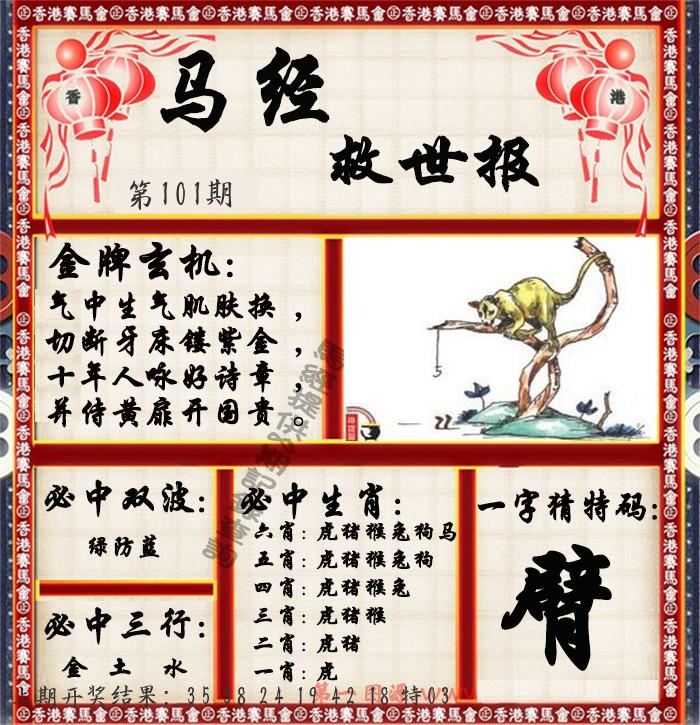 香港賽馬會
香
港
马经
救世报
第101期
金牌玄机：
气中生气肌肤换，
切断牙床镂紫金，
十年人咏好诗章，
并侍黄扉开国贵。
必中双波：
绿防蓝
必中三行：
金土水
必中生肖：
六肖：虎猪猴兔狗马
五肖：虎猪猴兔狗
四肖：虎猪猴兔
三肖：虎猪猴
二肖：虎猪
一肖：虎
一字猜特码：
臂
期开奖结果：35 98 24 19 42 18特03